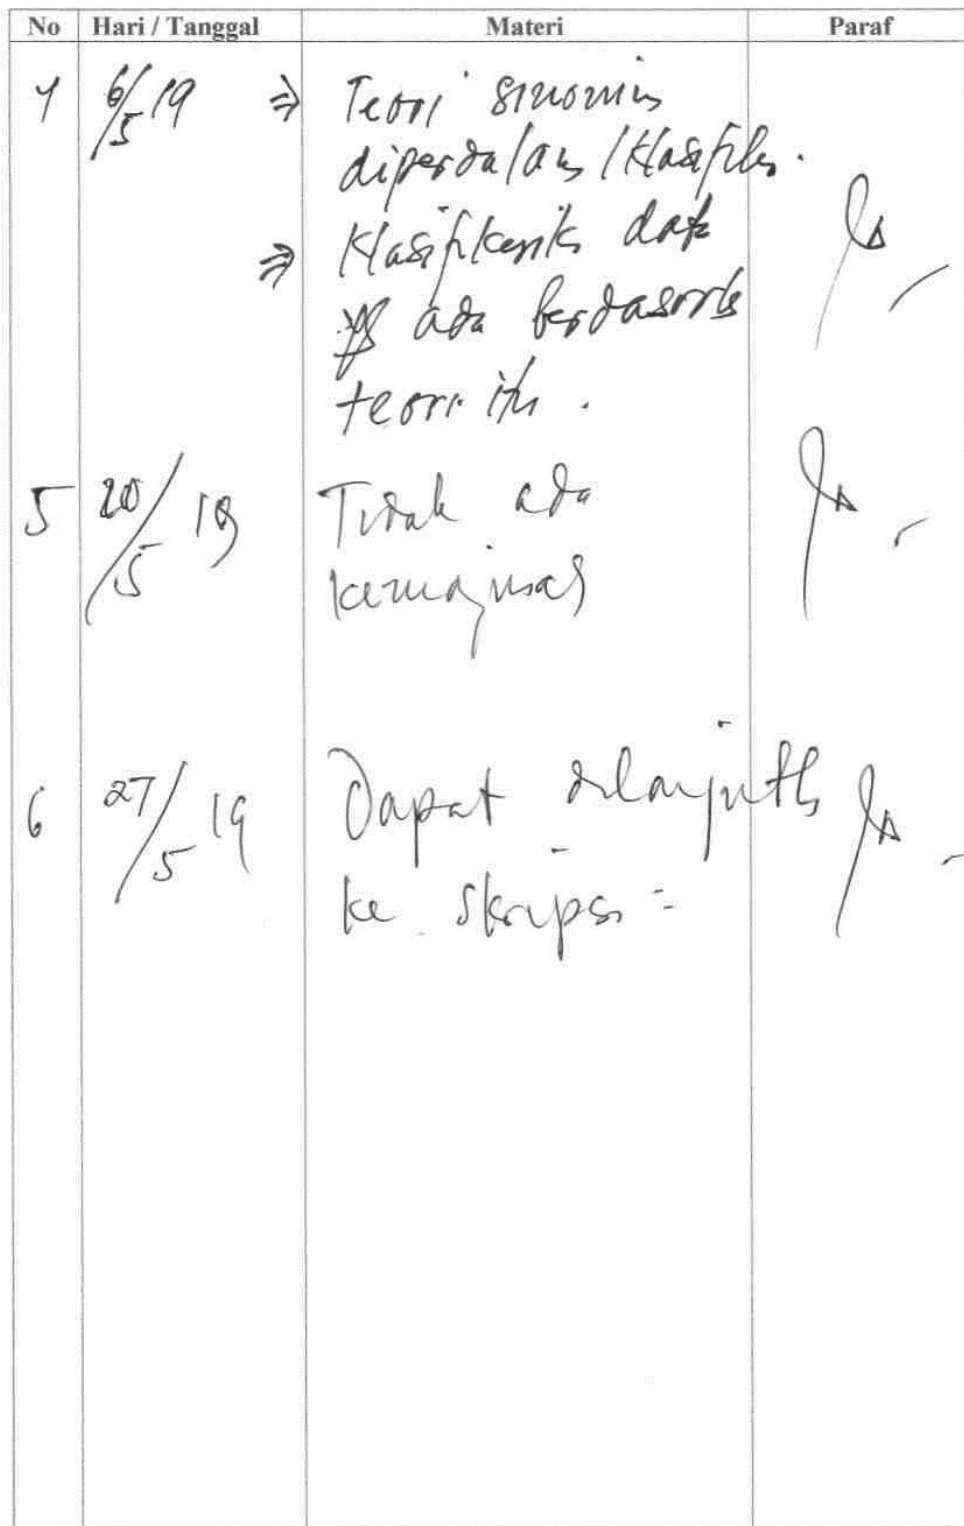 No Hari / Tanggal Materi Paraf
4 6/5 19 ⇒ Teori sinonim
diperdalam / Klasifik.
⇒ Klasifikasik data
yg ada berdasark
teori itu.
5 20/5 19 Tidak ada
kemajuan
6 27/5 19 Dapat dilanjutk
ke skripsi